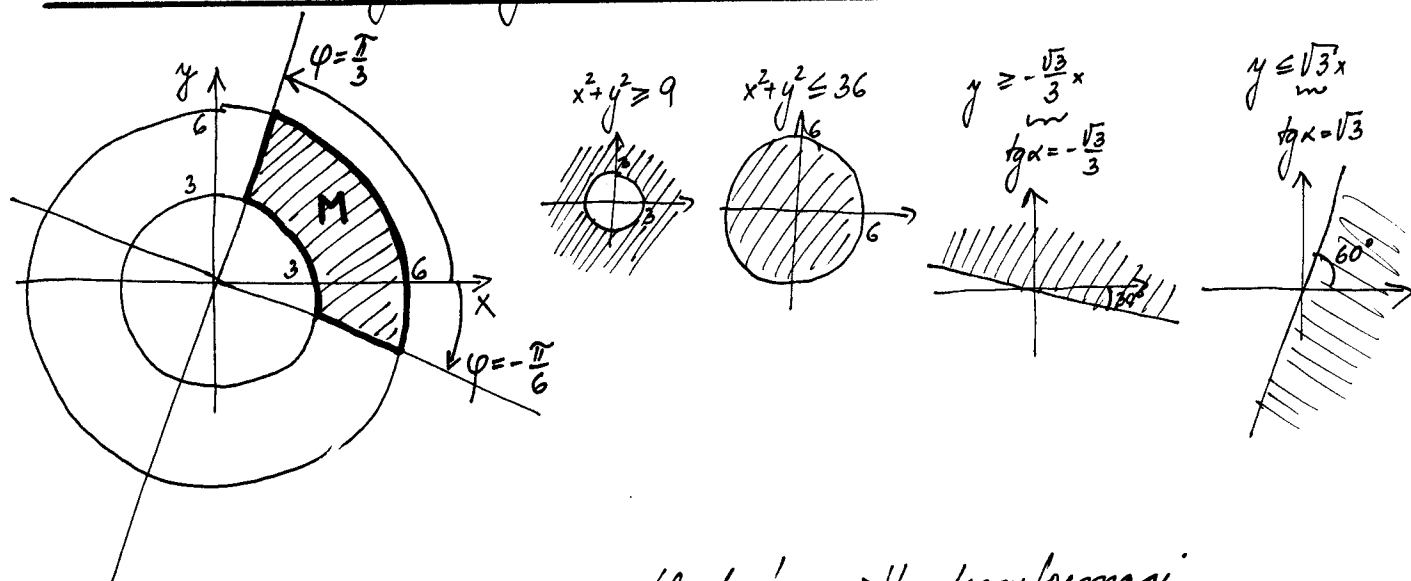 φ=π/3
y
6
3
M
3
6
x
φ=-π/6
x²+y²≥9
3
3
x²+y²≤36
6
6
y≥-√3/3 x
tgα=-√3/3
30°
y≤√3x
tgα=√3
60°